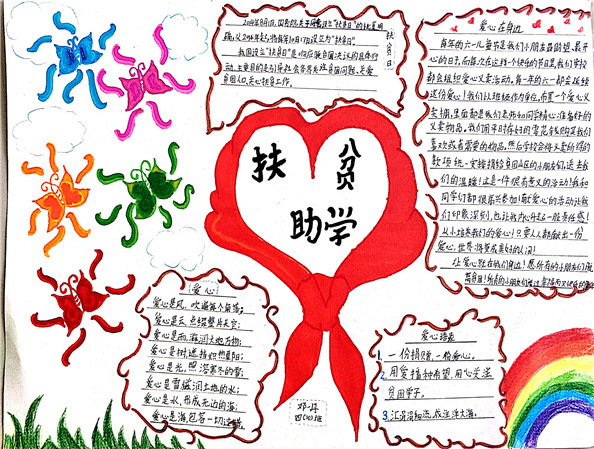 2014年8月1日,国务院关于同意设立“扶贫日”的批复明
确,从2014年起,将每年10月17日设立为“扶贫日”。
我国设立“扶贫日”是响应联合国决议的具体行
动,主要目的是引导社会各界关注贫困问题,关爱
贫困人口,关心扶贫工作。
扶贫日
爱心在身边
每年的六一儿童节是我们小朋友最盼望、最开
心的日子,而每次在这样一个快乐的节日里,我们学校
都会组织爱心义卖活动。每一年的六一都会延续
这份爱心!我们以班级作为单位,布置一个爱心义
卖棚,里面都是我们老师和同学精心准备好的
义卖物品。我们用平时存好的零花钱购买我们
喜欢或者需要的物品。然后学校会将义卖所得的
款项统一安排捐给贫困山区的小朋友们,送去我
们的温暖!这是一件很有意义的活动!我和
同学们都很喜欢参加!献爱心的活动让我
们印象深刻,也让我内心升起一股责任感!
从小培养我们的爱心!只要人人都献出一份
爱心,世界将变成美好的人间!
让爱心就在我们身边!愿所有的小朋友们脱
离贫困!
扶贫
助学
(爱心)
爱心是风,吹遍每个角落;
爱心是云,点缀整片天空;
爱心是雨,滋润大地万物;
爱心是树,遮挡炽热骄阳;
爱心是光,照溶寒冬的雪;
爱心是雪,滋润土地的水;
爱心是水,形成无边的海;
爱心是海,包容一切
邓一
四(10)班
爱心语录
1. 一份捐赠,一份爱心。
2. 用爱播种希望,用心交送
贫困学子。
3. 江河淌细流,成汪洋大海。